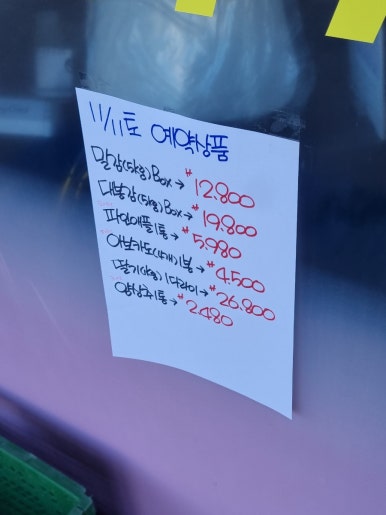 11/11토 예약상품
말감(타용)Box → ₩12.800
대봉감(타용)Box → ₩19.800
파인애플1통 → ₩5.980
아보카도(1개)1봉 → ₩4.500
딸기(타용)1다라이 → ₩26.800
양상추1통 → ₩2.480